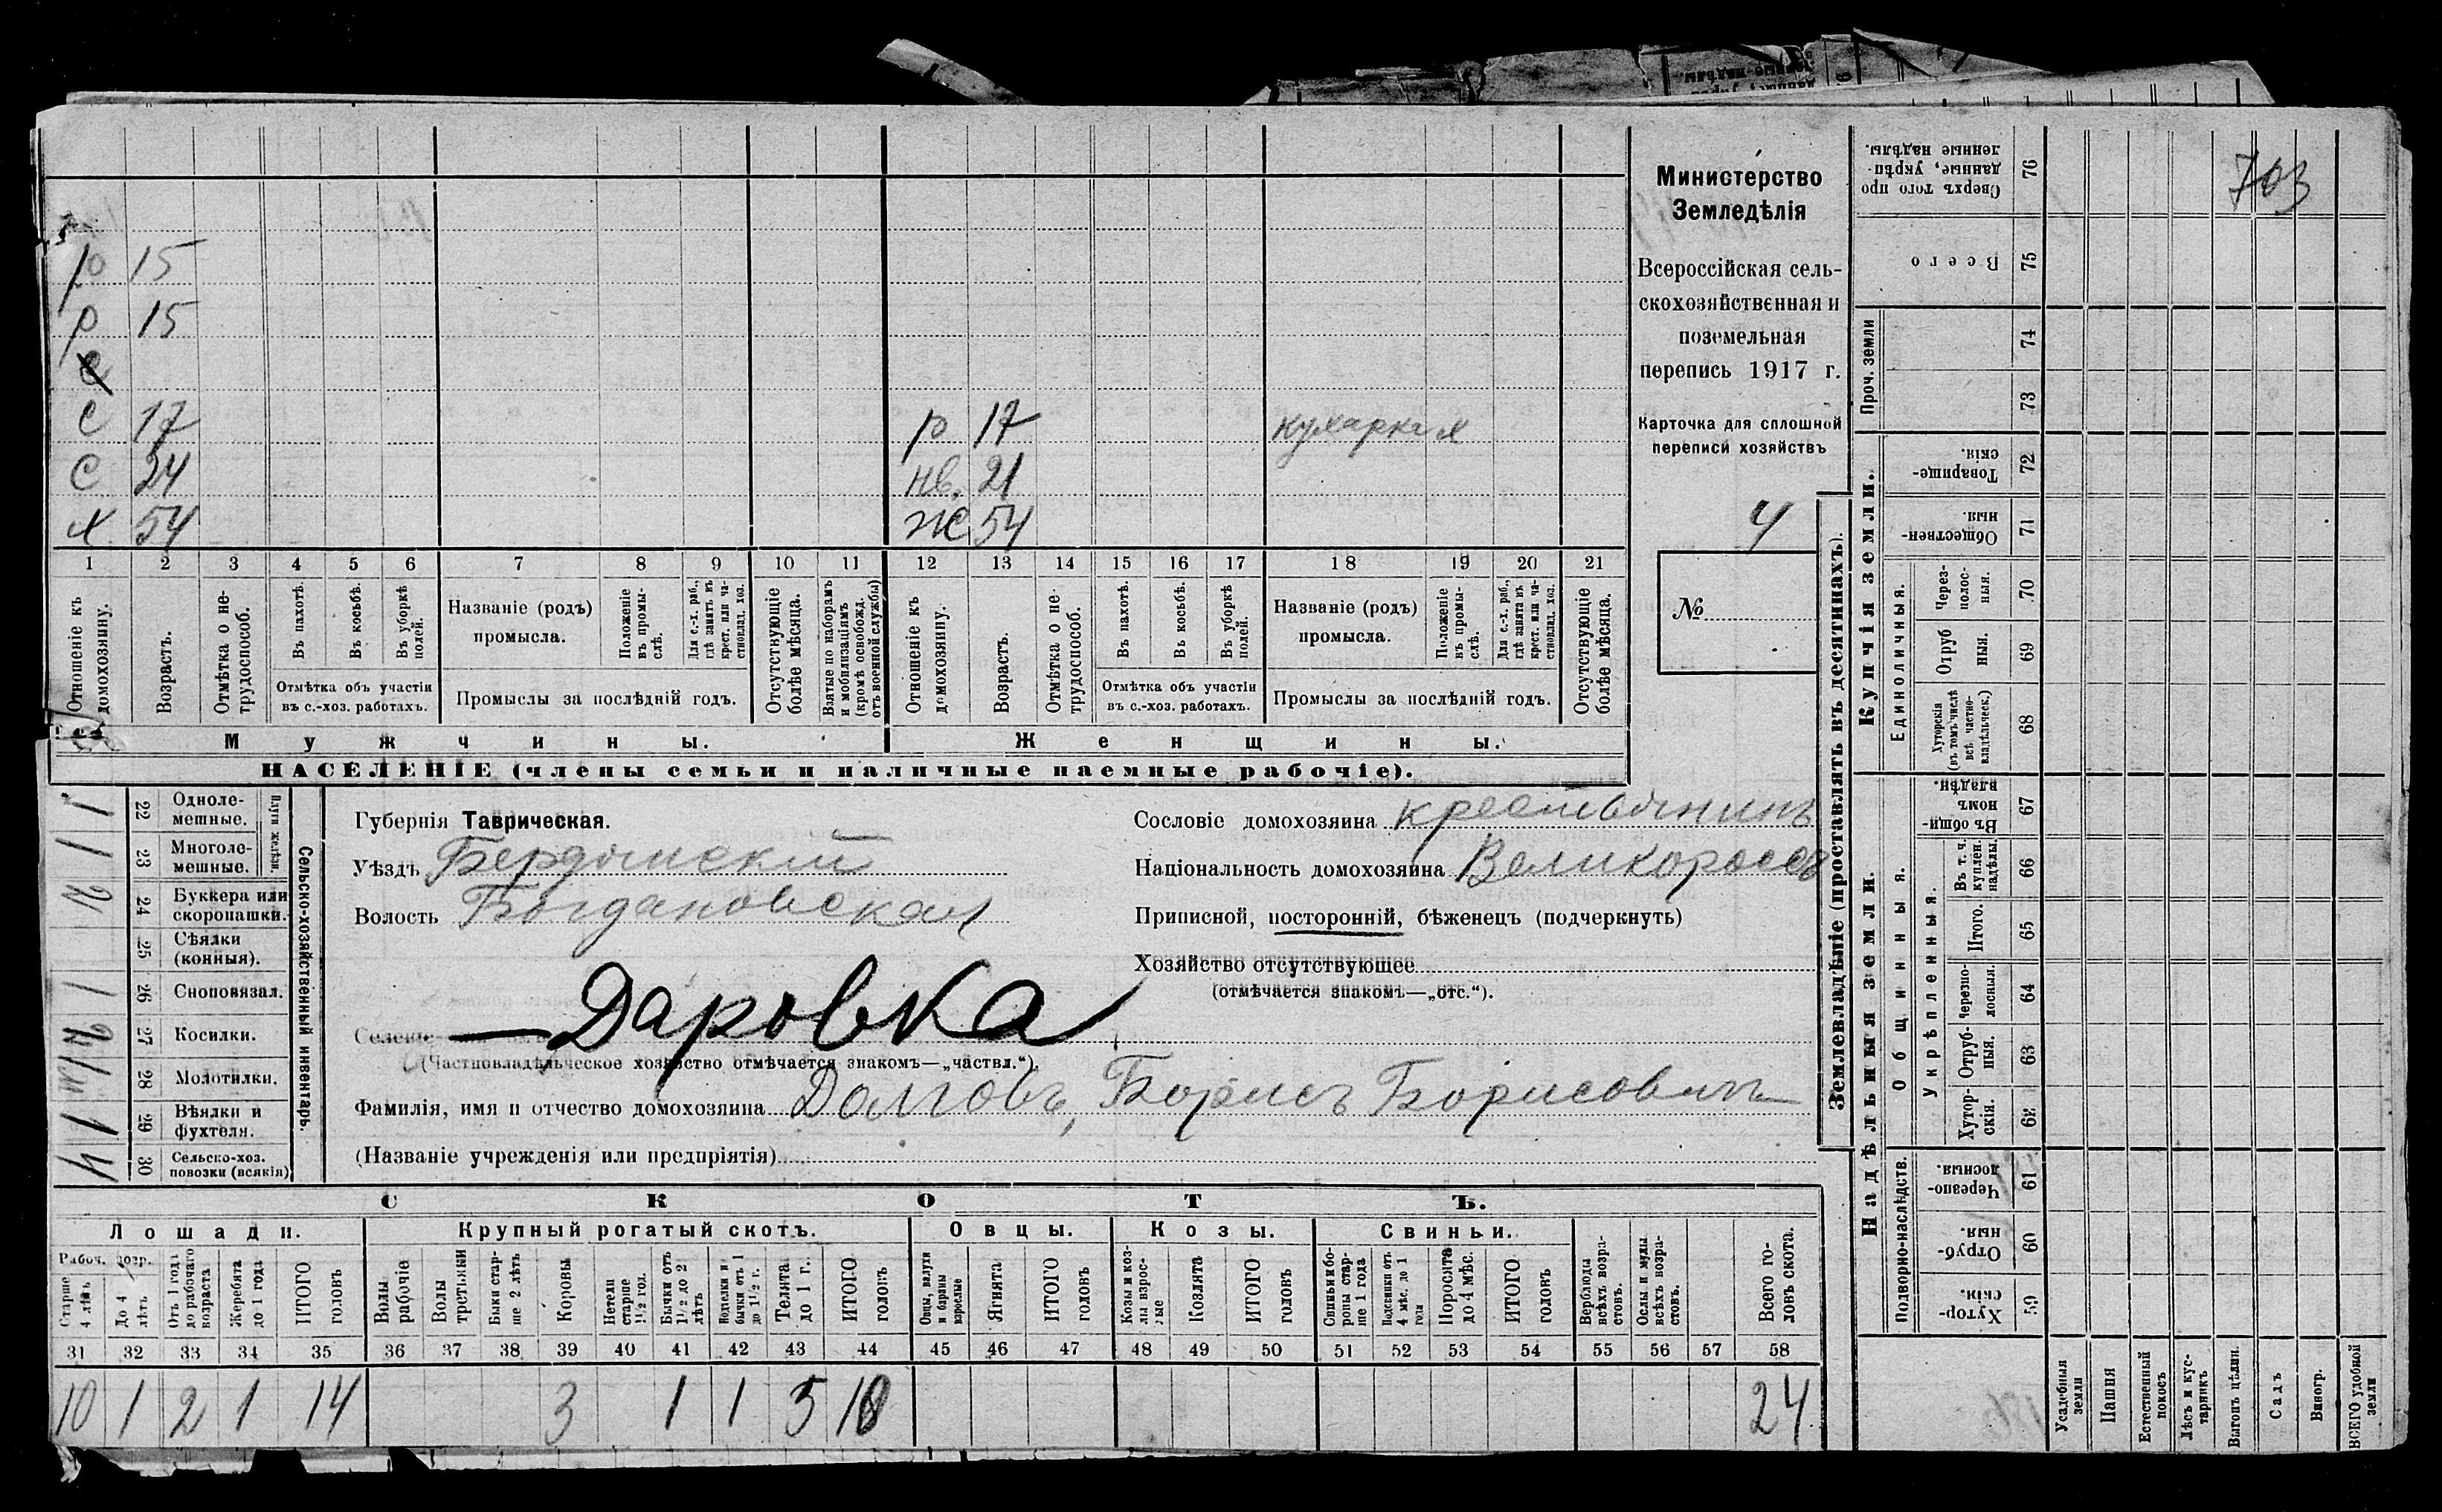 703
р 15
р 15
с 17
р 17
кухаркия
с 24
нв. 21
х 54
ж 54
1 2 3 4 5 6 7 8 9 10 11 12 13 14 15 16 17 18 19 20 21
Отношеніе къ домохозяину.
Возрастъ.
Отмѣтка о нетрудоспособ.
Въ пахотѣ.
Въ косьбѣ.
Въ уборкѣ полей.
Отмѣтка объ участіи въ с.-хоз. работахъ.
Названіе (родъ) промысла.
Положеніе въ промыслѣ.
Для с.-х. раб., гдѣ занятъ въ крест. или частновлад. хоз.
Промыслы за послѣдній годъ.
Отсутствующіе болѣе мѣсяца.
Взятые по наборамъ и мобилизаціямъ (кромѣ освобожд. отъ военной службы)
Отношеніе къ домохозяину.
Возрастъ.
Отмѣтка о нетрудоспособ.
Въ пахотѣ.
Въ косьбѣ.
Въ уборкѣ полей.
Отмѣтка объ участіи въ с.-хоз. работахъ.
Названіе (родъ) промысла.
Положеніе въ промыслѣ.
Для с.-х. раб., гдѣ занята въ крест. или частновлад. хоз.
Промыслы за послѣдній годъ.
Отсутствующіе болѣе мѣсяца.
Мужчины.
Женщины.
НАСЕЛЕНІЕ (члены семьи и наличные наемные рабочіе).
Министерство
Земледѣлія
Всероссійская сель-
скохозяйственная и
поземельная
перепись 1917 г.
Карточка для сплошной
переписи хозяйствъ
4
№
Плуги желѣзн.
22 Одноле-мешные. 1
23 Многоле-мешные. 1
24 Буккера или скоропашки.
25 Сѣялки (конныя).
26 Сноповязал. 1
27 Косилки.
28 Молотилки.
29 Вѣялки и фухтеля. 1
30 Сельско-хоз. повозки (всякія) 4
Сельско-хозяйственный инвентарь.
Губернія Таврическая.
Уѣздъ Бердянскій
Волость Богдановская
Селеніе Даровка
(Частновладѣльческое хозяйство отмѣчается знакомъ—„частвл.“).
Сословіе домохозяина крестьянинъ
Національность домохозяина Великороссъ
Приписной, посторонній, бѣженецъ (подчеркнуть)
Хозяйство отсутствующее
(отмѣчается знакомъ—„отс.“).
Фамилія, имя и отчество домохозяина Долговъ, Борисъ Борисовичъ
(Названіе учрежденія или предпріятія)
СКОТЪ.
Лошади.
Крупный рогатый скотъ.
Овцы.
Козы.
Свиньи.
Рабоч. возр.
Старше 4 лѣтъ
До 4 лѣтъ
Отъ 1 года до рабочаго возраста
Жеребята до 1 года
ИТОГО головъ
Волы рабочіе
Волы третьяки
Быки старше 2 лѣтъ
Коровы
Нетели старше 1½ год.
Бычки отъ 1½ до 2 лѣтъ
Телки и бычки отъ 1 до 1½ г.
Телята до 1 г.
ИТОГО головъ
Овцы, валухи и бараны взрослые
Ягнята
ИТОГО головъ
Козы и козлы взрослые
Козлята
ИТОГО головъ
Свиньи и боровы старше 1 года
Подсвинки отъ 4 мѣс. до 1 года
Поросята до 4 мѣс.
ИТОГО головъ
Верблюды всѣхъ возрастовъ.
Ослы и мулы всѣхъ возрастовъ.
Всего головъ скота.
31 32 33 34 35 36 37 38 39 40 41 42 43 44 45 46 47 48 49 50 51 52 53 54 55 56 57 58
10 1 2 1 14 3 1 1 5 10 24
Землевладѣніе (проставлять въ десятинахъ).
Купчія земли.
Надѣльныя земли.
Проч. земли
Единоличныя.
Общинныя.
Укрѣпленныя.
Подворно-наслѣдств.
Сверхъ того проданные, укрѣпленные надѣлы. 76
Всего 75
74
73
Товарищескія. 72
Общественныя. 71
Черезполосныя. 70
Отрубныя. 69
Хуторскія (въ томъ числѣ всѣ частновладѣльческ.) 68
Въ общинномъ владѣн. 67
Въ т. ч. куплен. надѣлы. 66
Итого. 65
Черезполосныя. 64
Отрубныя. 63
Хуторскія. 62
Черезполосныя. 61
Отрубныя. 60
Хуторскія. 59
Усадебныя земли
Пашня
Естественный покосъ
Лѣсъ и кустарникъ
Выгонъ цѣлин.
Садъ
Виногр.
ВСЕГО удобной земли